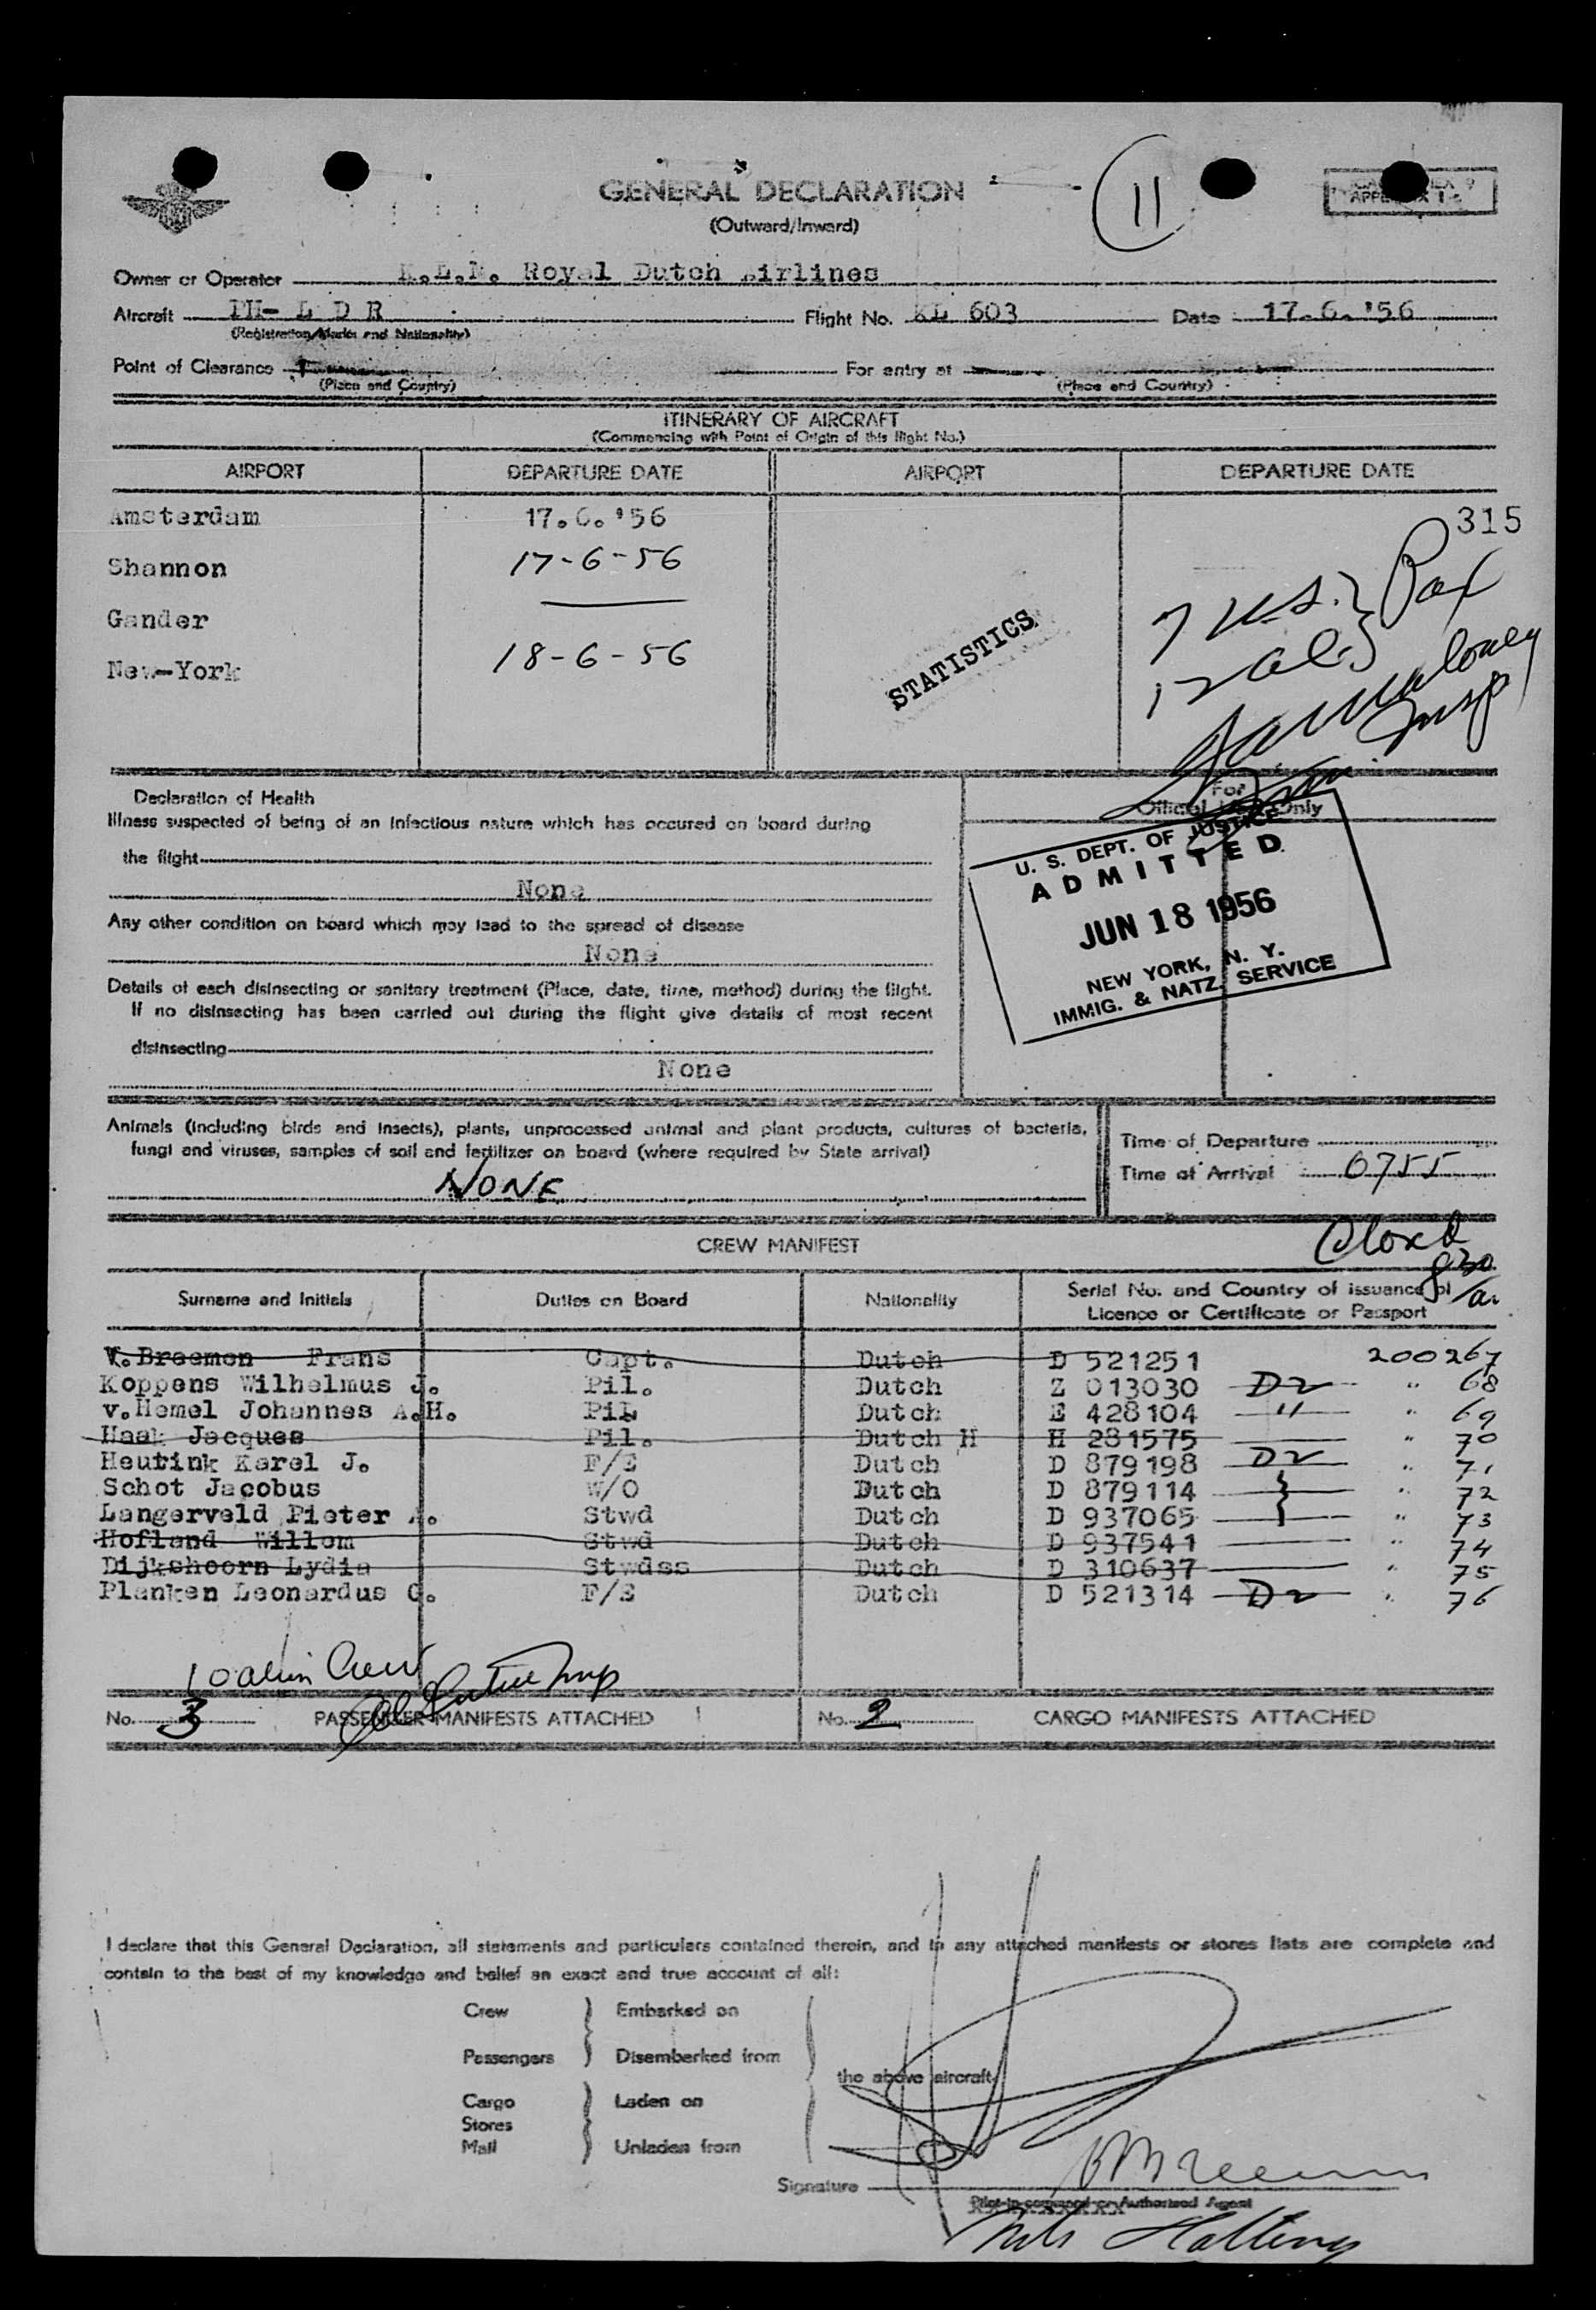 GENERAL DECLARATION
(Outward/Inward)
11
Owner or Operator K.L.M. Royal Dutch Airlines
Aircraft PH- L D R Flight No. KL 603 Date 17.6.'56
(Registration Marks and Nationality)
Point of Clearance For entry at
(Place and Country) (Place and Country)
ITINERARY OF AIRCRAFT
(Commencing with Point of Origin of this flight No.)
AIRPORT DEPARTURE DATE AIRPORT DEPARTURE DATE
Amsterdam 17.6.'56 315
Shannon 17-6-56
Gander
New-York 18-6-56
STATISTICS
7 U.S. Pax
Insp
Declaration of Health
Illness suspected of being of an infectious nature which has occured on board during
the flight
None
Any other condition on board which may lead to the spread of disease
None
Details of each disinsecting or sanitary treatment (Place, date, time, method) during the flight.
If no disinsecting has been carried out during the flight give details of most recent
disinsecting
None
For
Official Use Only
U. S. DEPT. OF JUSTICE
ADMITTED
JUN 18 1956
NEW YORK, N. Y.
IMMIG. & NATZ. SERVICE
Animals (including birds and insects), plants, unprocessed animal and plant products, cultures of bacteria,
fungi and viruses, samples of soil and fertilizer on board (where required by State arrival)
NONE
Time of Departure
Time of Arrival 0755
CREW MANIFEST
Closed
830
Surname and Initials Duties on Board Nationality Serial No. and Country of issuance of
Licence or Certificate or Passport
V.Breemen Frans Capt. Dutch D 521251 200267
Koppens Wilhelmus J. Pil. Dutch Z 013030 D2 " 68
v.Hemel Johannes A.H. Pil Dutch E 428104 " " 69
Haak Jacques Pil. Dutch H H 281575 " 70
Heutink Karel J. F/E Dutch D 879198 D2 " 71
Schot Jacobus W/O Dutch D 879114 " 72
Langerveld Pieter A. Stwd Dutch D 937065 " 73
Hofland Willem Stwd Dutch D 937541 " 74
Dijkshoorn Lydia Stwdss Dutch D 310637 " 75
Planken Leonardus C. F/E Dutch D 521314 D2 " 76
10 alien Crew
No. 3 PASSENGER MANIFESTS ATTACHED No. 2 CARGO MANIFESTS ATTACHED
I declare that this General Declaration, all statements and particulars contained therein, and in any attached manifests or stores lists are complete and
contain to the best of my knowledge and belief an exact and true account of all:
Crew Embarked on
Passengers Disembarked from
the above aircraft.
Cargo Laden on
Stores
Mail Unladen from
Signature
Pilot-in-command or Authorised Agent